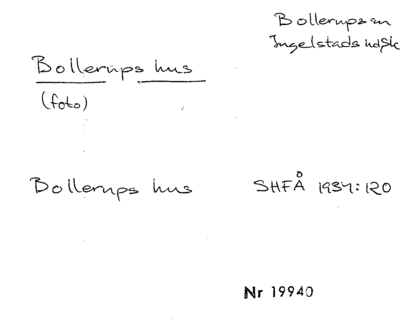 Bollerups sn
Ingelstads hd Sk
Bollerups hus
(foto)
Bollerups hus SHFÅ 1937:120
Nr 19940